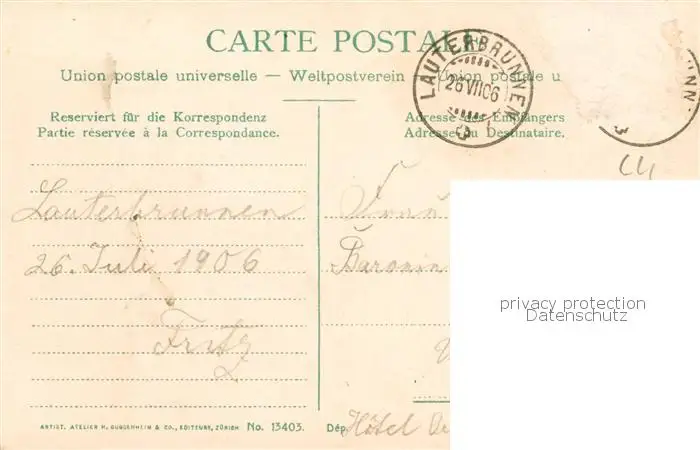 CARTE POSTALE
Union postale universelle — Weltpostverein — Union postale u
LAUTERBRUNNEN
26 VII 06
UNN
Reserviert für die Korrespondenz
Partie réservée à la Correspondance.
Adresse des Empfängers
Adresse du Destinataire.
Lauterbrunnen
26. Juli 1906
Fritz
Baronin
Dép.
Hôtel
privacy protection
Datenschutz
ARTIST. ATELIER H. GUGGENHEIM & CO., EDITEURS, ZÜRICH No. 13403.